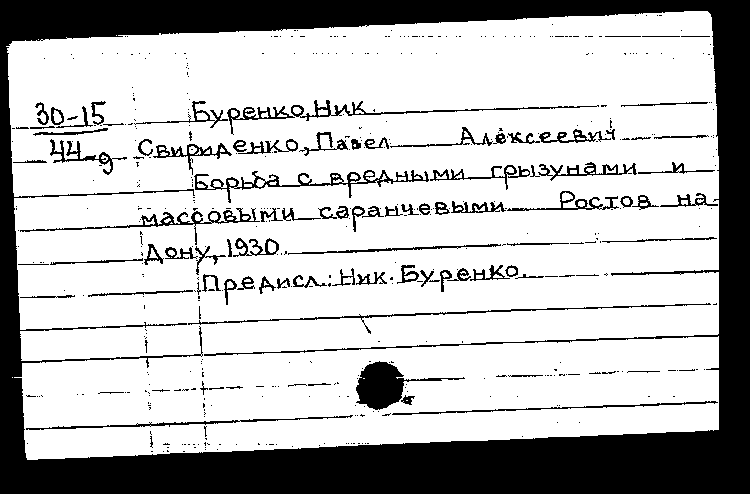 30-15 Буренко, Ник.
44-д Свириденко, Павел Алексеевич
Борьба с вредными грызунами и
массовыми саранчевыми Ростов на-
Дону, 1930.
Предисл.: Ник. Буренко.